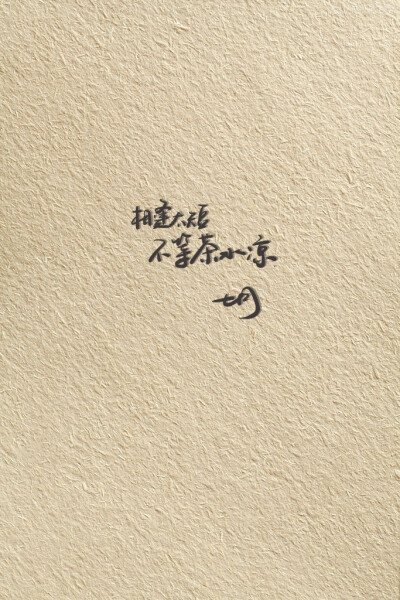 相逢太短
不等茶水凉
七月